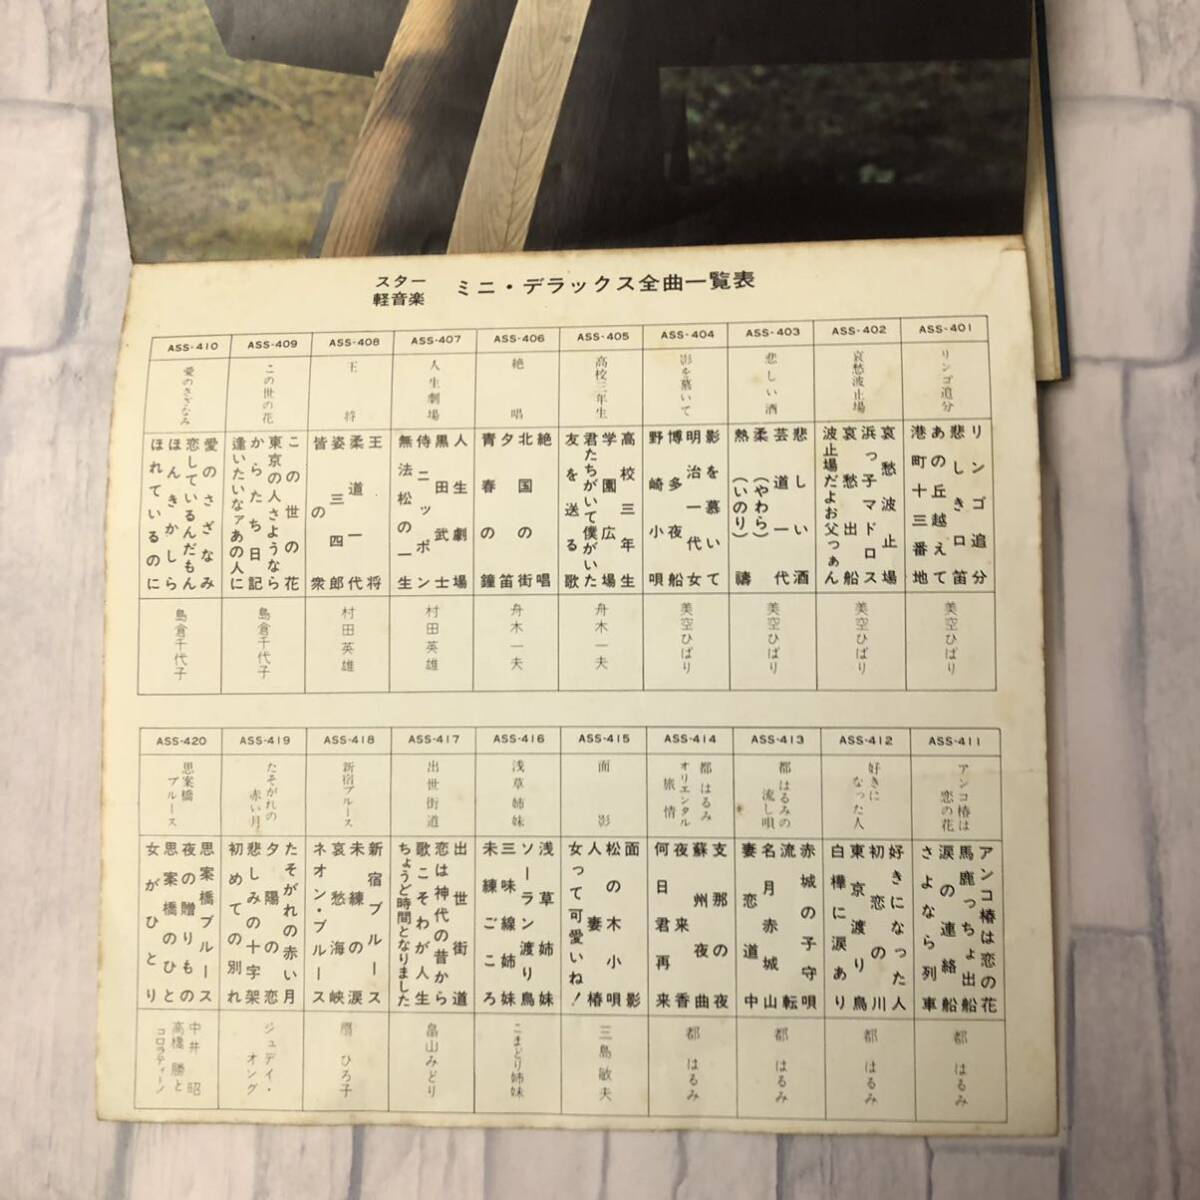 スター
軽音楽
ミニ・デラックス全曲一覧表
ASS-401
リンゴ追分
リンゴ追分
悲しき口笛
あの丘越えて
港町十三番地
美空ひばり
ASS-402
哀愁波止場
哀愁波止場
浜っ子マドロス
哀愁出船
波止場だよお父つぁん
美空ひばり
ASS-403
悲しい酒
悲しい酒
芸道一代
柔(やわら)
熱禱(いのり)
美空ひばり
ASS-404
影を慕いて
影を慕いて
明治一代女
博多夜船
野崎小唄
美空ひばり
ASS-405
高校三年生
高校三年生
学園広場
君たちがいて僕がいた
友を送る歌
舟木一夫
ASS-406
絶唱
絶唱
北国の街
夕笛
青春の鐘
舟木一夫
ASS-407
人生劇場
人生劇場
黒田武士
侍ニッポン
無法松の一生
村田英雄
ASS-408
王将
王将
柔道一代
姿三四郎
皆の衆
村田英雄
ASS-409
この世の花
この世の花
東京の人さようなら
からたち日記
逢いたいなァあの人に
島倉千代子
ASS-410
愛のさざなみ
愛のさざなみ
恋しているんだもん
ほんきかしら
ほれているのに
島倉千代子
ASS-411
アンコ椿は
恋の花
アンコ椿は恋の花
馬鹿っちょ出船
涙の連絡船
さよなら列車
都はるみ
ASS-412
好きに
なった人
好きになった人
初恋の川
東京渡り鳥
白樺に涙あり
都はるみ
ASS-413
都はるみの
流し唄
赤城の子守唄
流転
名月赤城山
妻恋道中
都はるみ
ASS-414
都はるみ
オリエンタル
旅情
支那の夜
蘇州夜曲
夜来香
何日君再来
都はるみ
ASS-415
面影
面影
松の木小唄
人妻椿
女って可愛いね!
三島敏夫
ASS-416
浅草姉妹
浅草姉妹
ソーラン渡り鳥
三味線姉妹
未練ごころ
こまどり姉妹
ASS-417
出世街道
出世街道
恋は神代の昔から
歌こそわが人生
ちょうど時間となりました
畠山みどり
ASS-418
新宿ブルース
新宿ブルース
未練の涙
哀愁海峡
ネオン・ブルース
扇ひろ子
ASS-419
たそがれの
赤い月
たそがれの赤い月
夕陽の恋
悲しみの十字架
初めての別れ
ジュディ・
オング
ASS-420
思案橋
ブルース
思案橋ブルース
夜の贈りもの
思案橋のひと
女がひとり
中井昭
高橋勝と
コロラティーノ